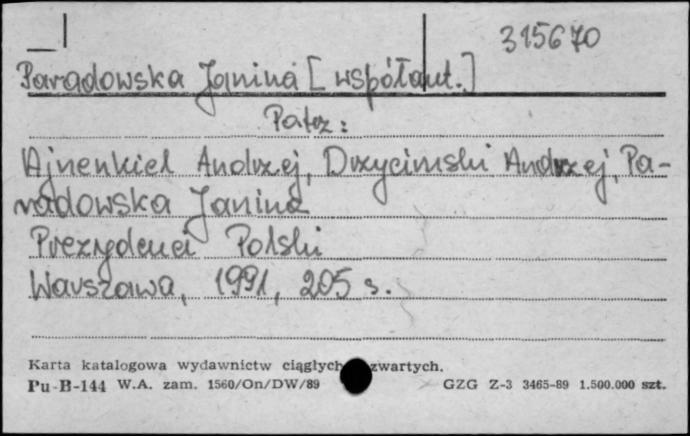 315670
Paradowska Janina [współaut.]
Patrz:
Ajnenkiel Andrzej, Drzycimski Andrzej, Pa-
radowska Janina
Prezydenci Polski
Warszawa, 1991, 205 s.
Karta katalogowa wydawnictw ciągłych zwartych.
Pu-B-144 W.A. zam. 1560/On/DW/89 GZG Z-3 3465-89 1.500.000 szt.